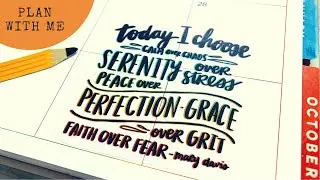 PLAN
WITH ME
28
today I choose
CALM over CHAOS
SERENITY over STRESS
PEACE over
PERFECTION·GRACE
over GRIT
FAITH OVER FEAR -macy davis
OCTOBER